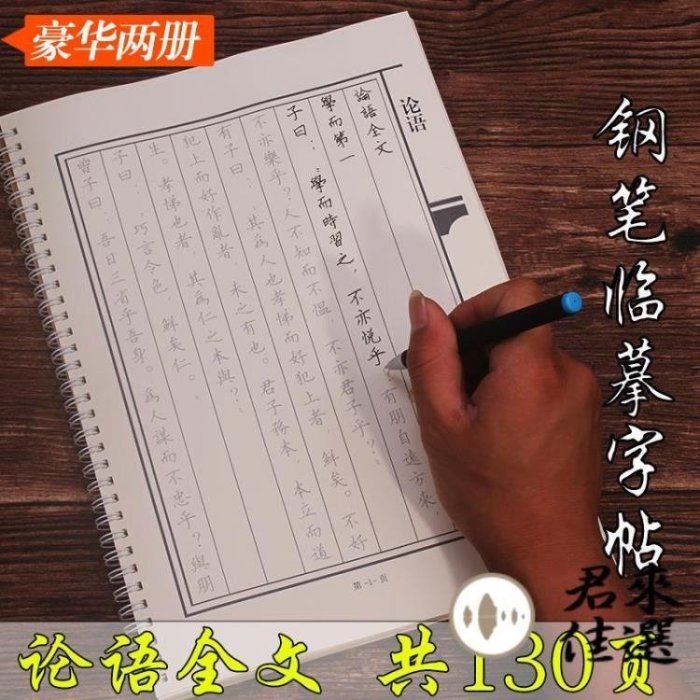 豪华两册
钢笔临摹字帖
论语
論語全文
學而第一
子曰：學而時習之，不亦悅乎？有朋自遠方來，
不亦樂乎？人不知而不慍，不亦君子乎？
有子曰：其為人也孝悌而好犯上者，鮮矣。不好
犯上而好作亂者，未之有也。君子務本，本立而道
生。孝悌也者，其為仁之本與？
子曰：巧言令色，鮮矣仁。
曾子曰：吾日三省乎吾身。為人謀而不忠乎？與朋
第-1-頁
君來
佳選
论语全文 共130页